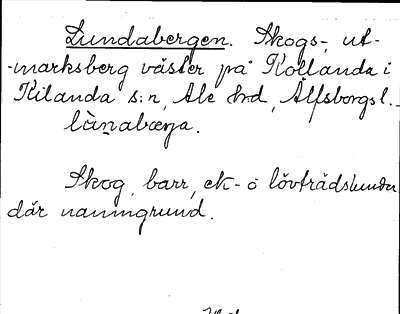 Lundabergen. Skogs-, ut-
-marksberg väster på Kollanda i
Kilanda s:n, Ale hrd, Älfsborgs l.
làṇabærja.
Skog, barr, ek- o lövträdslunder
där namngrund.